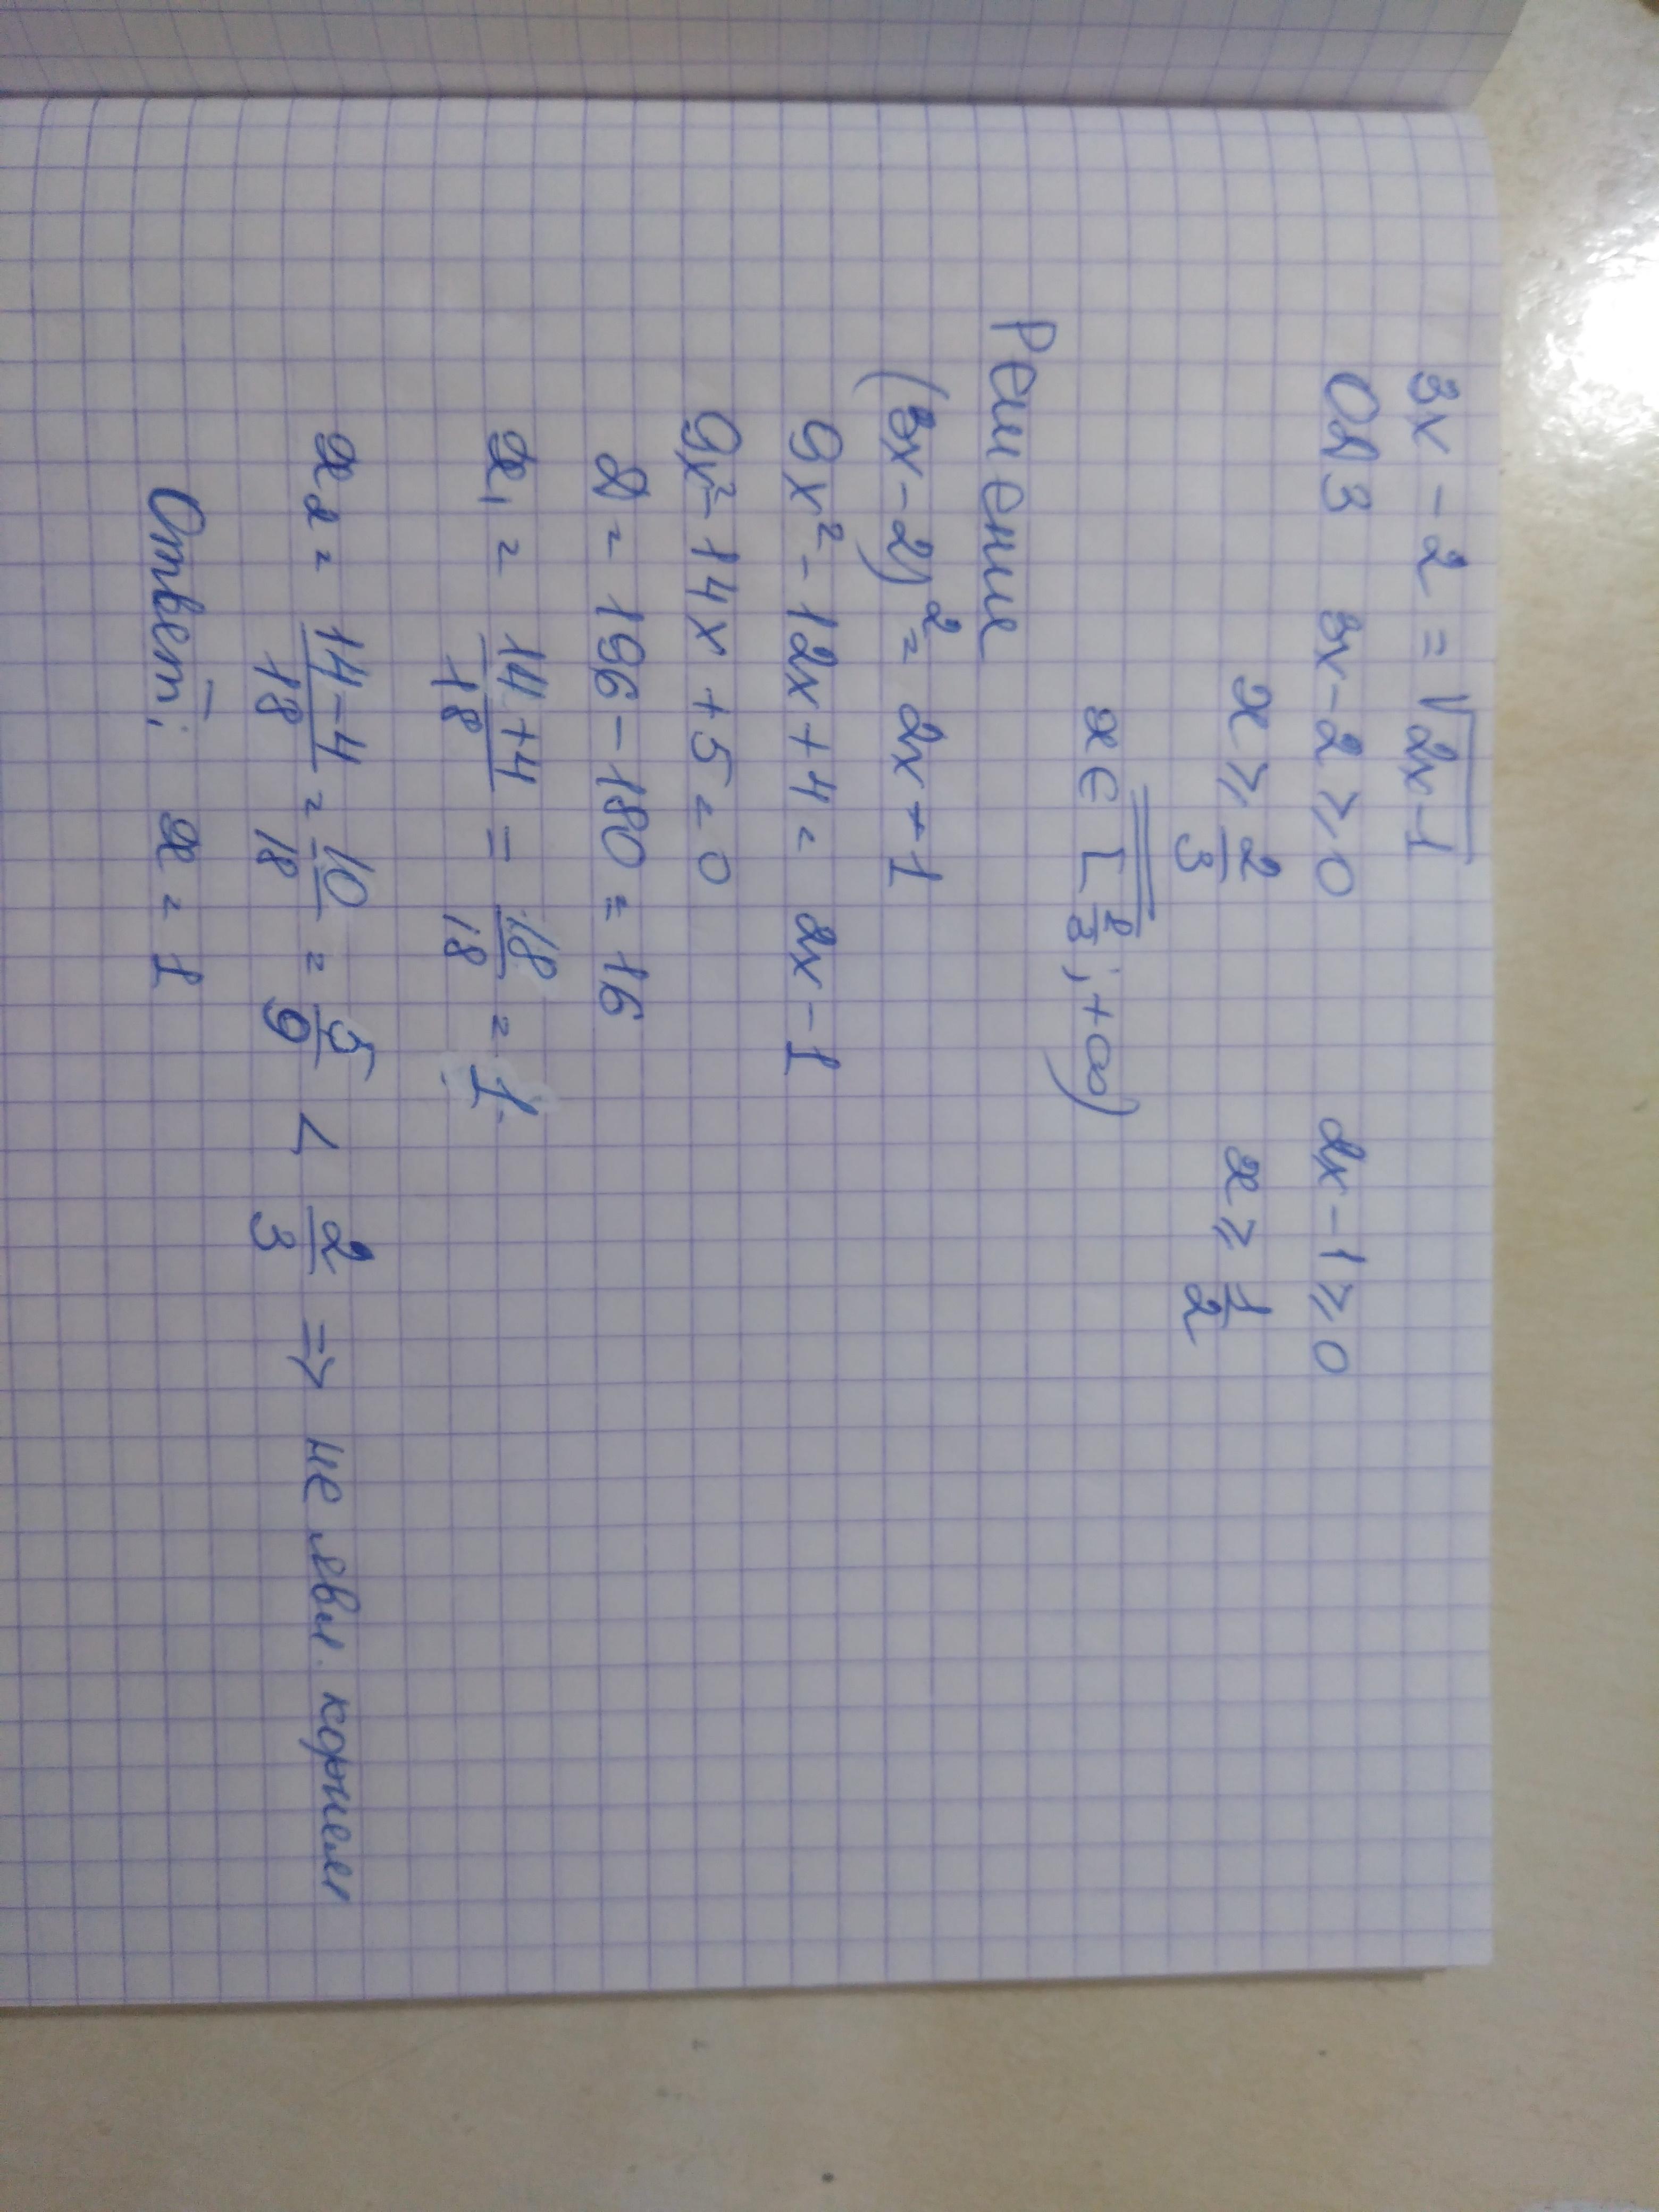 3x - 2 = √2x-1
ОДЗ 3x-2 ≥ 0 2x - 1 ≥ 0
x ≥ 2/3 x ≥ 1/2
x ∈ [2/3; +∞)
Решение
(3x-2)² = 2x+1
9x² - 12x + 4 = 2x - 1
9x² - 14x + 5 = 0
D = 196 - 180 = 16
x₁ = 14+4/18 = 18/18 = 1
x₂ = 14-4/18 = 10/18 = 5/9 < 2/3 => не явл. корнем
Ответ: x = 1